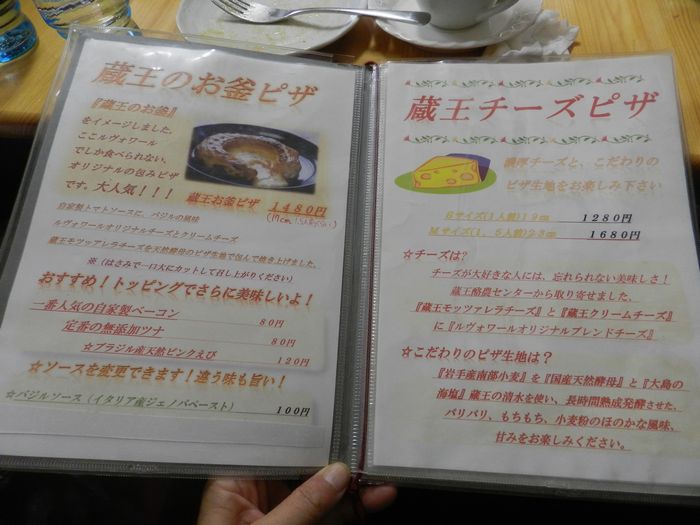 蔵王のお釜ピザ
『蔵王のお釜』
をイメージしました。
ここルヴォワール
でしか食べられない、
オリジナルの包みピザ
です。大人気！！！
蔵王お釜ピザ 1480円
(17cm 1.5人前くらい)
自家製トマトソースに、バジルの風味
ルヴォワールオリジナルチーズとクリームチーズ
蔵王モッツァレラチーズを天然酵母のピザ生地で包んで焼き上げました。
※（はさみで一口大にカットして召し上がりください）
おすすめ！トッピングでさらに美味しいよ！
一番人気の自家製ベーコン 80円
定番の無添加ツナ 80円
☆ブラジル産天然ピンクえび 120円
☆ソースを変更できます！違う味も旨い！
☆バジルソース（イタリア産ジェノバペースト） 100円
蔵王チーズピザ
濃厚チーズと、こだわりの
ピザ生地をお楽しみ下さい
Sサイズ(1人前)19cm 1280円
Mサイズ(1．5人前)23cm 1680円
☆チーズは?
チーズが大好きな人には、忘れられない美味しさ！
蔵王酪農センターから取り寄せました、
『蔵王モッツアレラチーズ』と『蔵王クリームチーズ』
に『ルヴォワールオリジナルブレンドチーズ』
☆こだわりのピザ生地は？
『岩手産南部小麦』を『国産天然酵母』と『大島の
海塩』蔵王の清水を使い、長時間熟成発酵させた、
パリパリ、もちもち、小麦粉のほのかな風味、
甘みをお楽しみください。